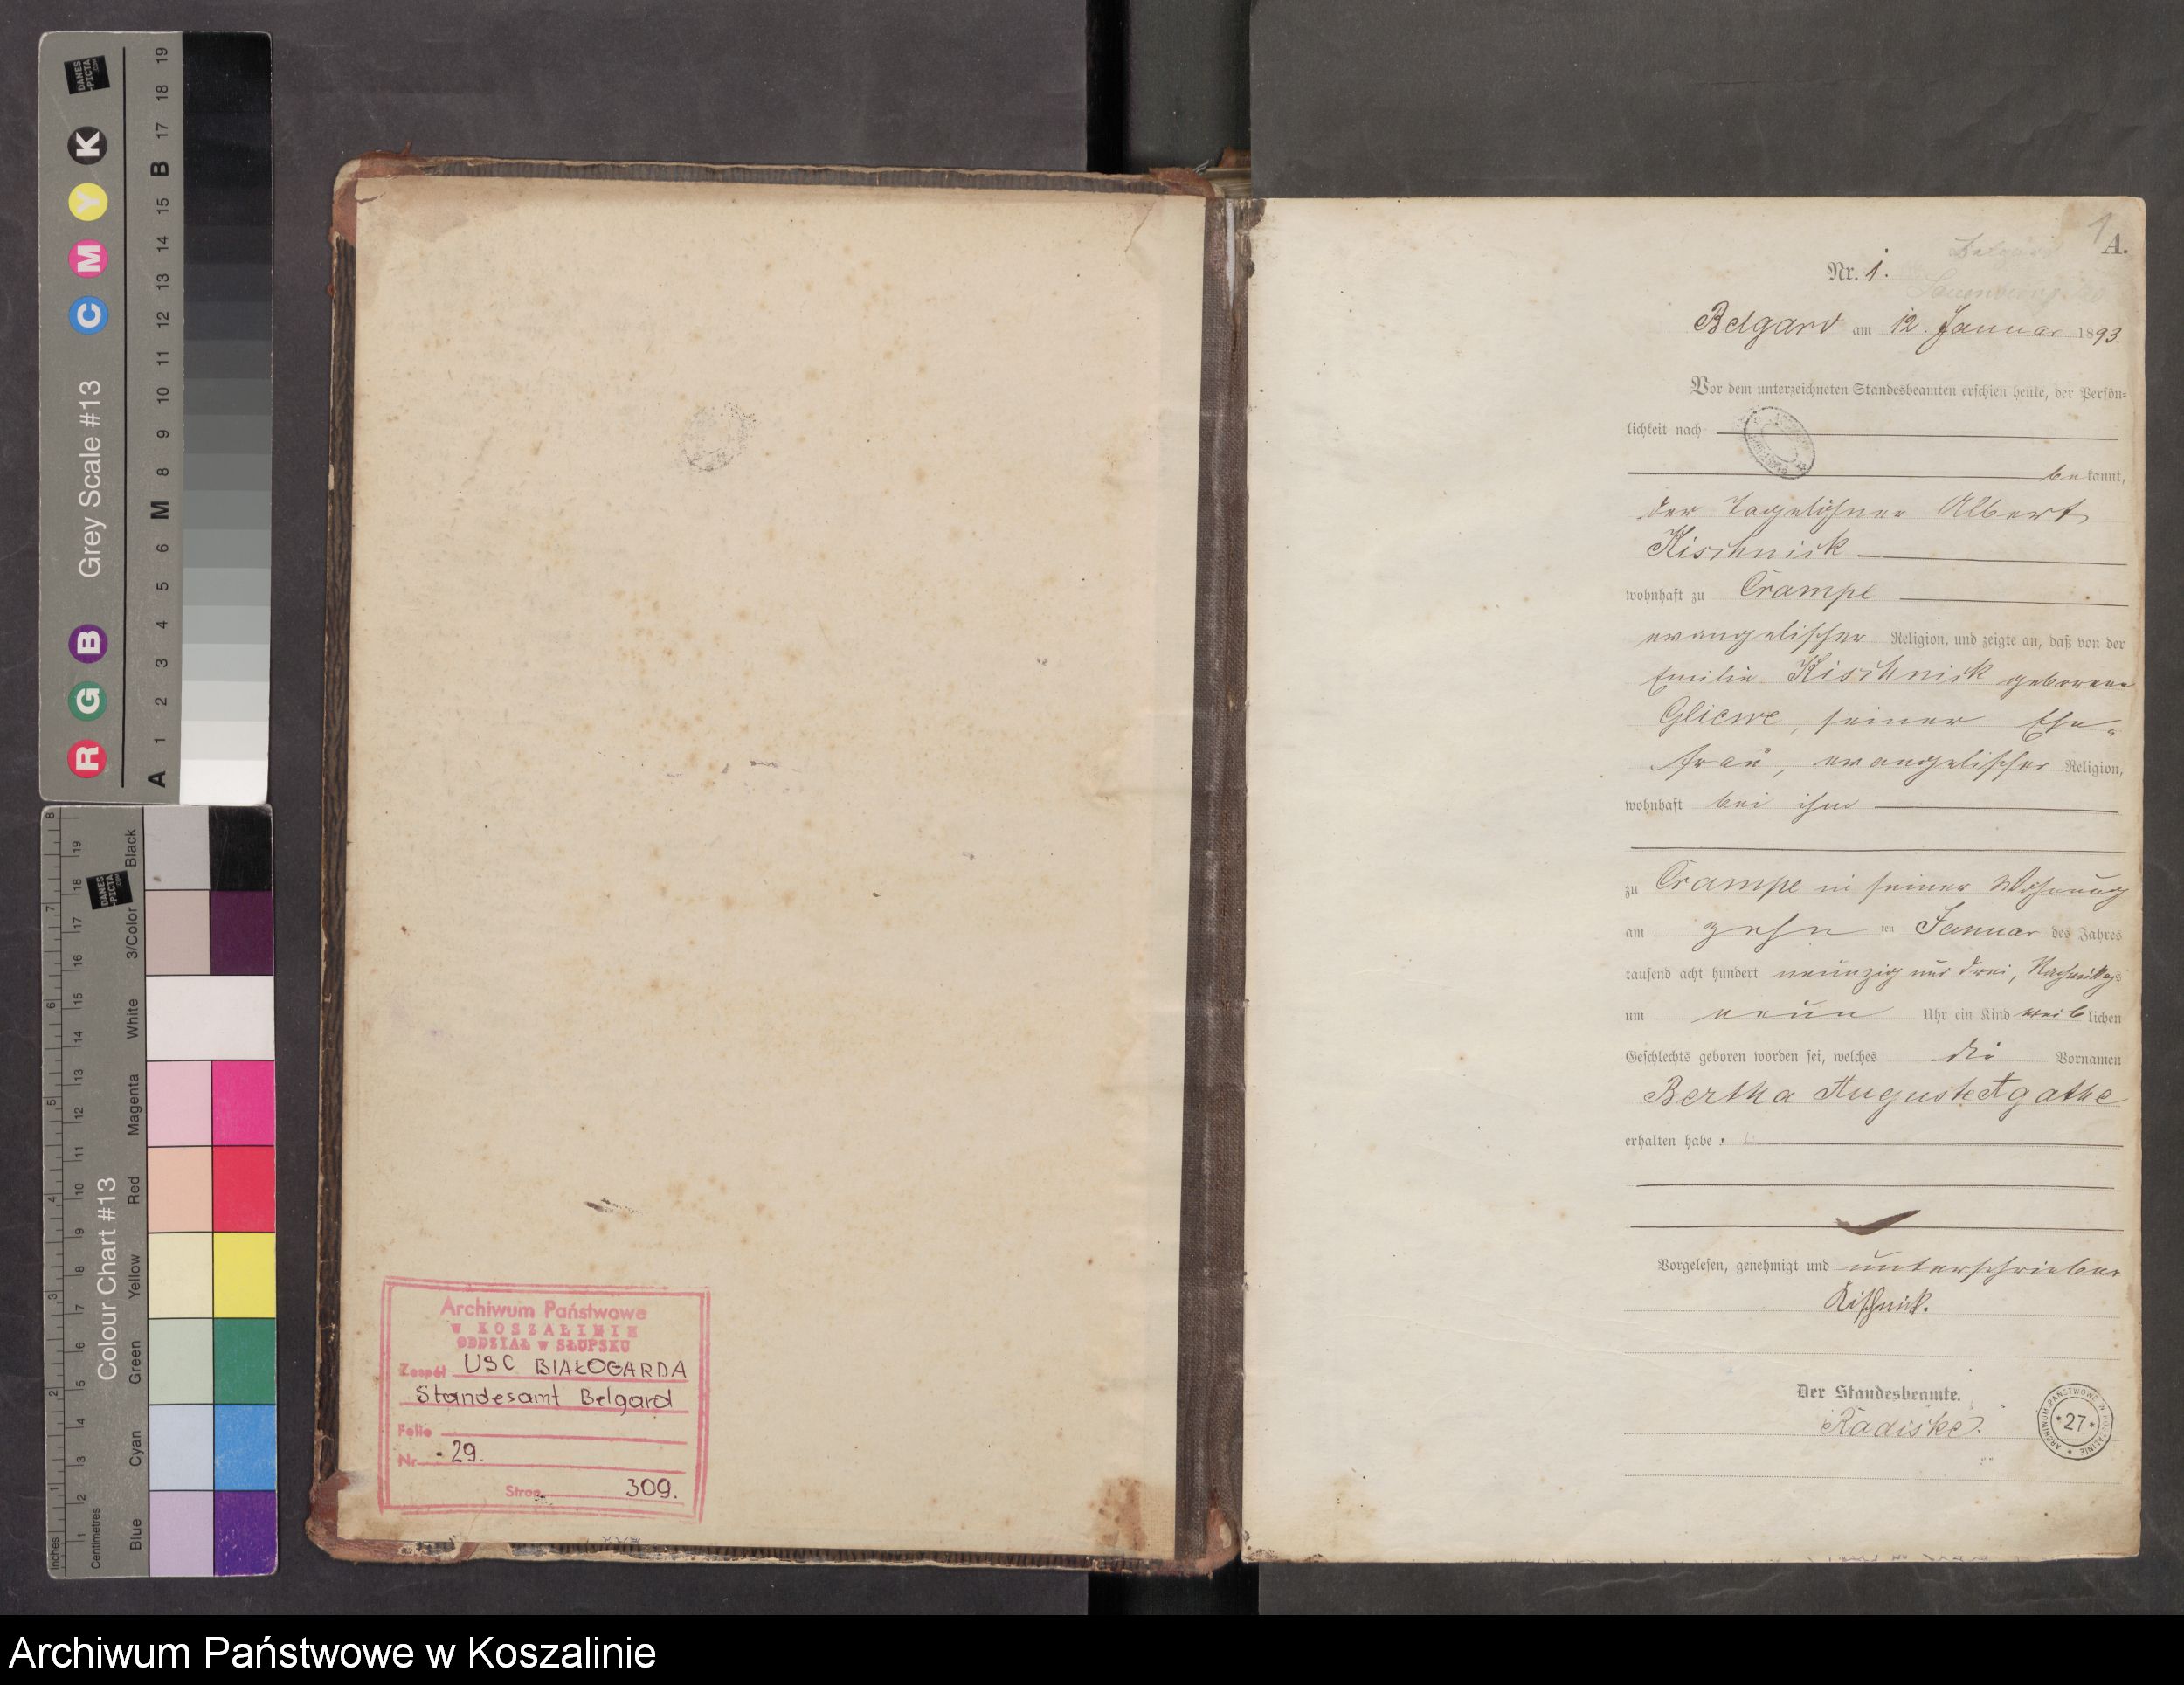 DANES
-PICTA
.COM
Grey Scale #13
R G B C M Y K
A 1 2 3 4 5 6 M 8 9 10 11 12 13 14 15 B 17 18 19
DANES
-PICTA
.COM
Colour Chart #13
Blue Cyan Green Yellow Red Magenta White 3/Color Black
Inches 1 2 3 4 5 6 7 8
Centimetres 1 2 3 4 5 6 7 8 9 10 11 12 13 14 15 16 17 18 19
Archiwum Państwowe
w KOSZALINIE
ODDZIAŁ w SŁUPSKU
Zespół USC BIAŁOGARDA
Standesamt Belgard
Folio
Nr. 29.
Stron 309.
1
A.
Belgard
Nr. 1.
Belgard am 12. Januar 1893.
Vor dem unterzeichneten Standesbeamten erschien heute, der Persön-
lichkeit nach
bekannt,
der Tagelöhner Albert
Kischnick
wohnhaft zu Crampe
evangelischer Religion, und zeigte an, daß von der
Emilie Kischnick geborene
Gliewe, seiner Ehe-
frau, evangelischer Religion,
wohnhaft bei ihm
zu Crampe in seiner Wohnung
am zehn ten Januar des Jahres
tausend acht hundert neunzig und drei, Nachmittags
um neun Uhr ein Kind weiblichen
Geschlechts geboren worden sei, welches die Vornamen
Bertha Auguste Agathe
erhalten habe.
Vorgelesen, genehmigt und unterschrieben
Kischnick.
Der Standesbeamte.
Radiske.
ARCHIWUM PAŃSTWOWE W KOSZALINIE
*27*
Archiwum Państwowe w Koszalinie